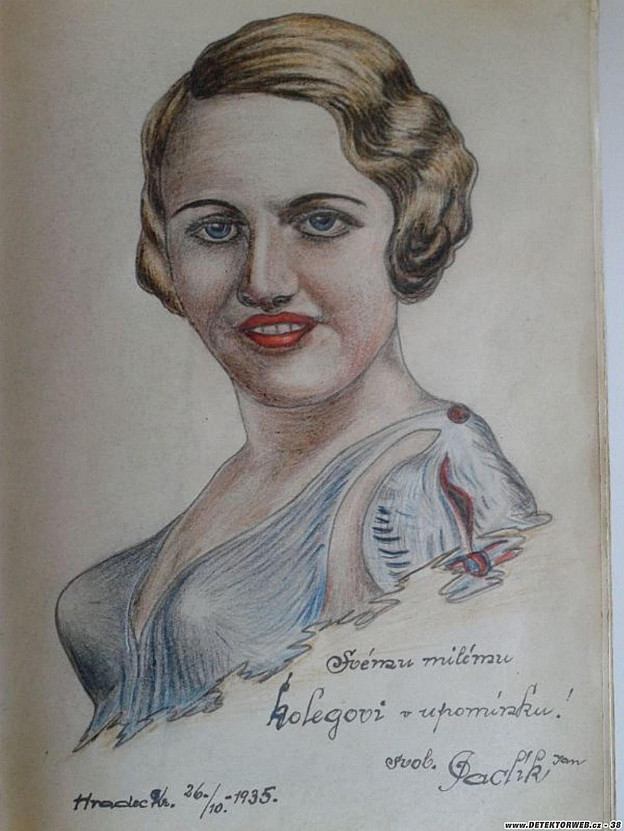 Svému milému
kolegovi v upomínku!
svob. Paclík Jan
Hradec Kr. 26./10.-1935.
www.DETEKTORWEB.cz - 38